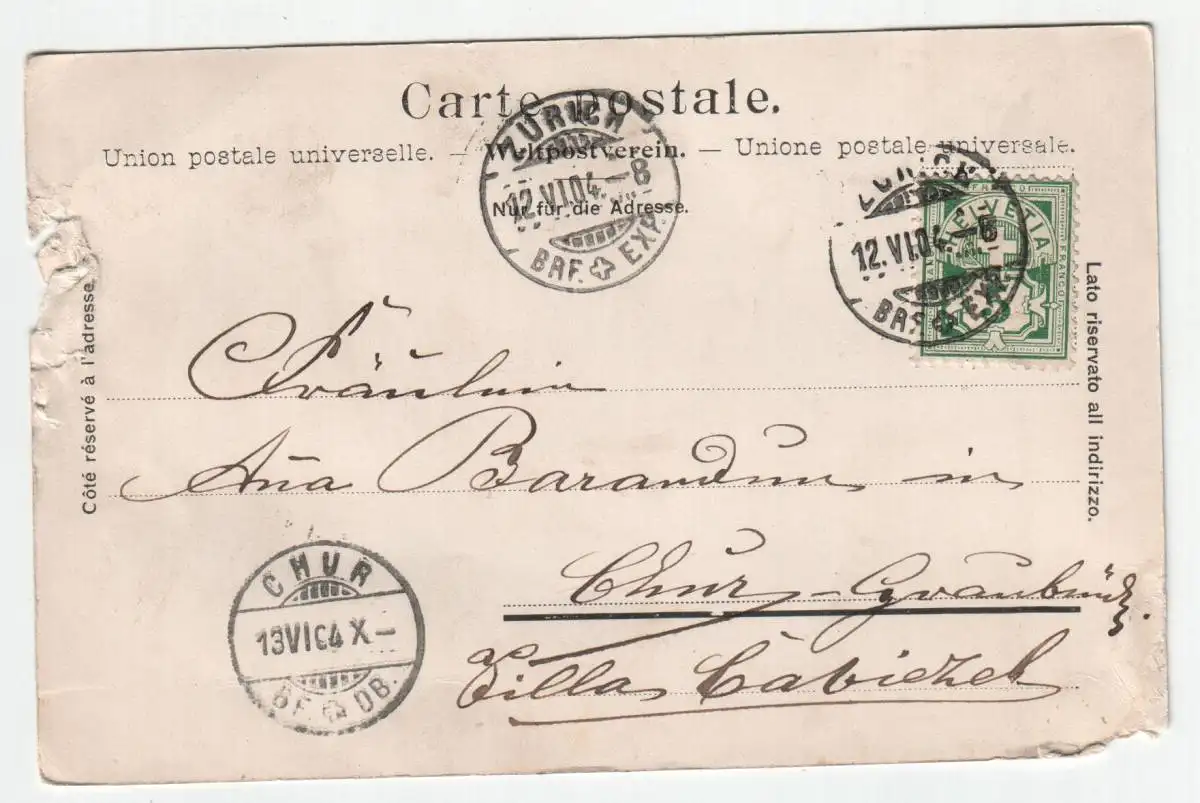 Carte postale.
Union postale universelle. — Weltpostverein. — Unione postale universale.
Nur für die Adresse.
ZÜRICH
12.VI.04.–8
BRF. EXP.
ZÜRICH
12.VI.04.–8
BRF. EXP.
FRANCO
HELVETIA
FRANCO
5
Côté réservé à l'adresse.
Lato riservato all indirizzo.
Fräulein
Aña Barandun in
Chur, – Graubündz.
Villa Cabiezel
CHUR
13VI04 X–
BF. DB.